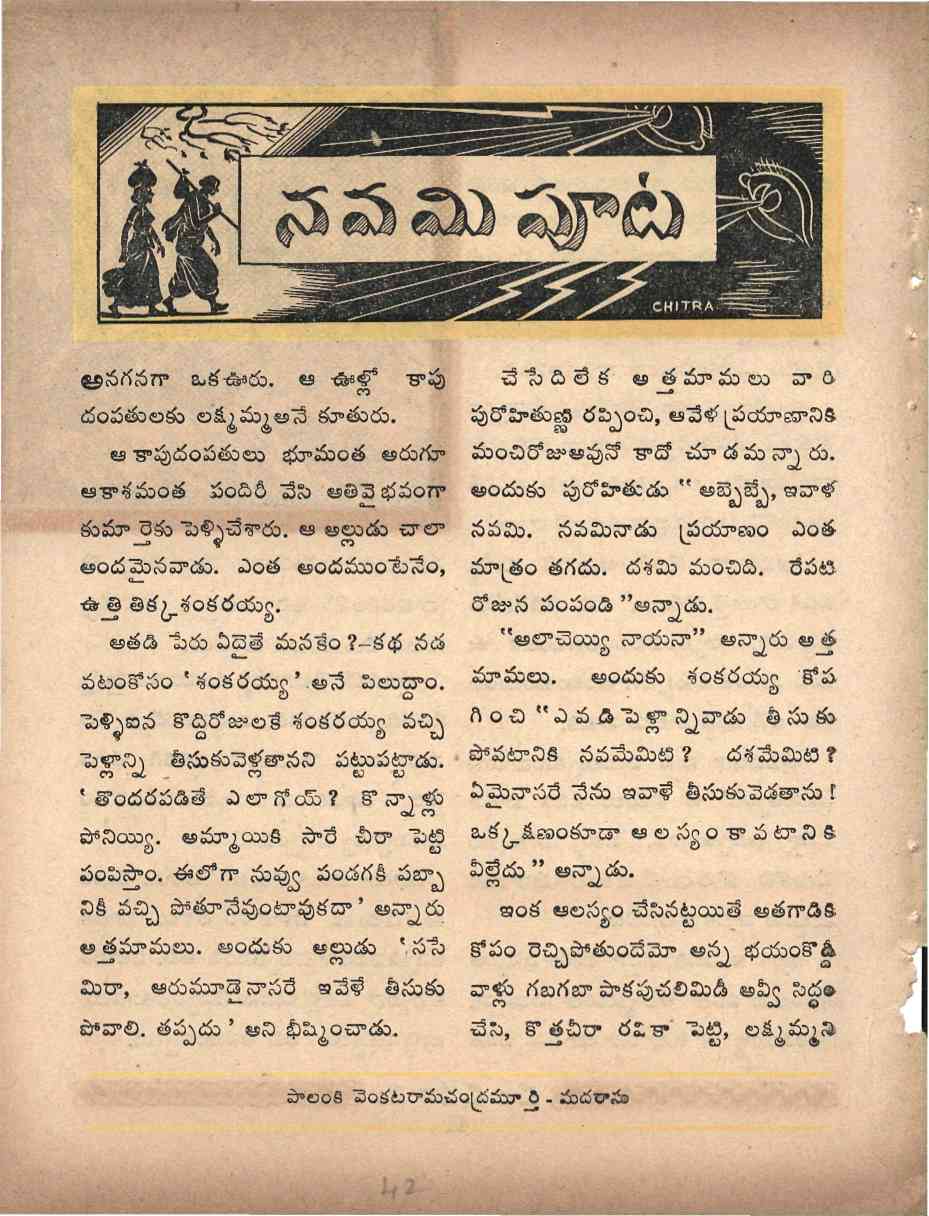 నవమి పూట
CHITRA
అనగనగా ఒకఊరు. ఆ ఊళ్లో కాపు
దంపతులకు లక్ష్మమ్మఅనే కూతురు.
ఆ కాపుదంపతులు భూమంత అరుగూ
ఆకాశమంత పందిరీ వేసి అతివైభవంగా
కుమార్తెకు పెళ్ళిచేశారు. ఆ అల్లుడు చాలా
అందమైనవాడు. ఎంత అందముంటేనేం,
ఉత్తి తిక్కశంకరయ్య.
అతడి పేరు ఏదైతే మనకేం?—కథ నడ
వటంకోసం ‘శంకరయ్య’ అనే పిలుద్దాం.
పెళ్ళిఐన కొద్దిరోజులకే శంకరయ్య వచ్చి
పెళ్లాన్ని తీసుకువెళ్లతానని పట్టుపట్టాడు.
‘తొందరపడితే ఎలాగోయ్? కొన్నాళ్లు
పోనియ్యి. అమ్మాయికి సారే చీరా పెట్టి
పంపిస్తాం. ఈలోగా నువ్వు పండగకీ పబ్బా
నికీ వచ్చి పోతూనేవుంటావుకదా’ అన్నారు
అత్తమామలు. అందుకు అల్లుడు ‘ససే
మిరా, ఆరుమూడైనాసరే ఇవేళే తీసుకు
పోవాలి. తప్పదు’ అని భీష్మించాడు.
చేసేదిలేక అత్తమామలు వారి
పురోహితుణ్ణి రప్పించి, ఆవేళ ప్రయాణానికి
మంచిరోజుఅవునో కాదో చూడమన్నారు.
అందుకు పురోహితుడు “అబ్బెబ్బే, ఇవాళ
నవమి. నవమినాడు ప్రయాణం ఎంత
మాత్రం తగదు. దశమి మంచిది. రేపటి
రోజున పంపండి”అన్నాడు.
“అలాచెయ్యి నాయనా” అన్నారు అత్త
మామలు. అందుకు శంకరయ్య కోప
గించి “ఎవడిపెళ్లాన్నివాడు తీసుకు
పోవటానికి నవమేమిటి? దశమేమిటి?
ఏమైనాసరే నేను ఇవాళే తీసుకువెడతాను!
ఒక్కక్షణంకూడా ఆలస్యం కావటానికి
వీల్లేదు” అన్నాడు.
ఇంక ఆలస్యం చేసినట్టయితే అతగాడికి
కోపం రెచ్చిపోతుందేమో అన్న భయంకొద్దీ
వాళ్లు గబగబా పాకపుచలిమిడీ అవ్వీ సిద్ధం
చేసి, కొత్తచీరా రవికా పెట్టి, లక్ష్మమ్మని
పాలంకి వెంకటరామచంద్రమూర్తి - మదరాసు
42